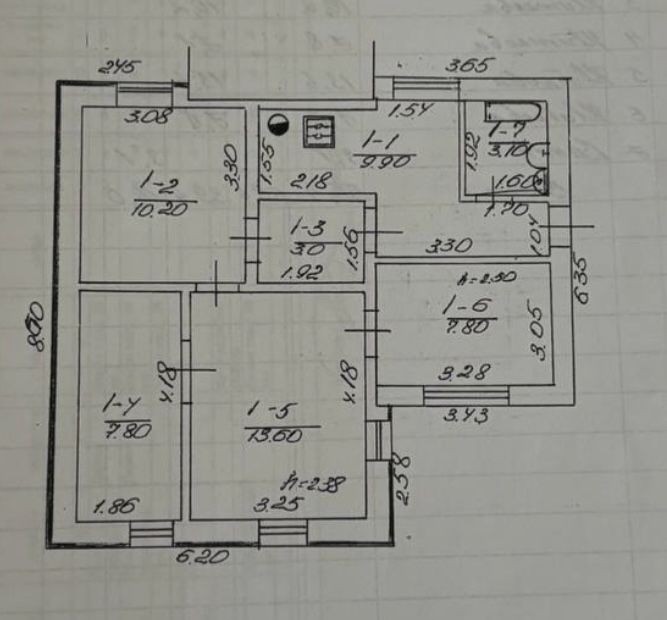 2.45
3.65
3.08
1.54
1-1
9.90
1-7
3.10
1.92
3.30
1.55
1-2
10.20
2.18
1.60
1.70
1-3
3.0
1.56
1.04
3.30
1.92
6.35
h=2.50
1-6
7.80
3.05
4.18
4.18
3.28
3.43
1-4
7.80
1-5
13.60
h=2.38
2.58
1.86
3.25
6.20